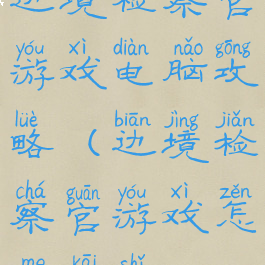 边境检察官
yóu xì diàn nǎo gōng
游戏电脑攻
lüè biān jìng jiǎn
略(边境检
chá guān yóu xì zěn
察官游戏怎
me kāi shǐ